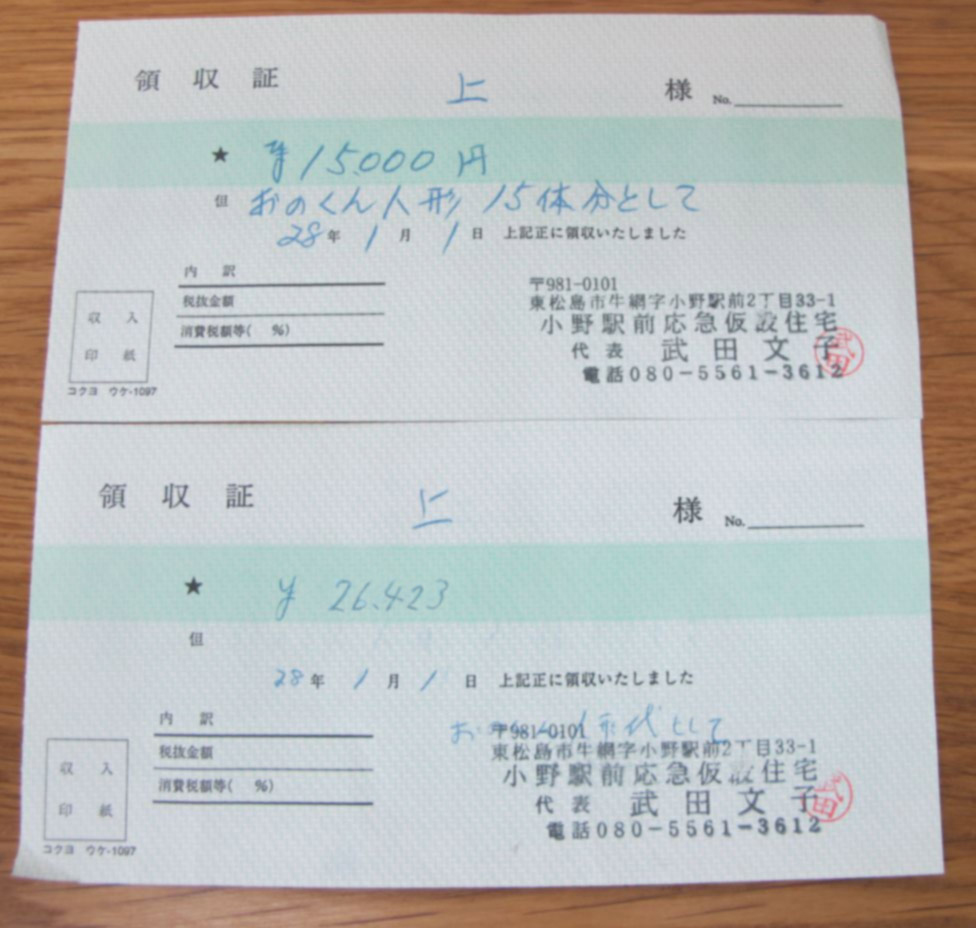 領収証 上 様 No.
★ ¥15.000円
但 おのくん人形 15体分として
28年 1月 1日 上記正に領収いたしました
内訳
税抜金額
消費税額等( %)
収入
印紙
コクヨ ウケ-1097
〒981-0101
東松島市牛網字小野駅前2丁目33-1
小野駅前応急仮設住宅
代表 武田文子
武田
電話080-5561-3612
領収証 上 様 No.
★ ¥ 26.423
但
28年 1月 1日 上記正に領収いたしました
内訳
税抜金額
消費税額等( %)
収入
印紙
コクヨ ウケ-1097
人形代として
〒981-0101
東松島市牛網字小野駅前2丁目33-1
小野駅前応急仮設住宅
代表 武田文子
武田
電話080-5561-3612